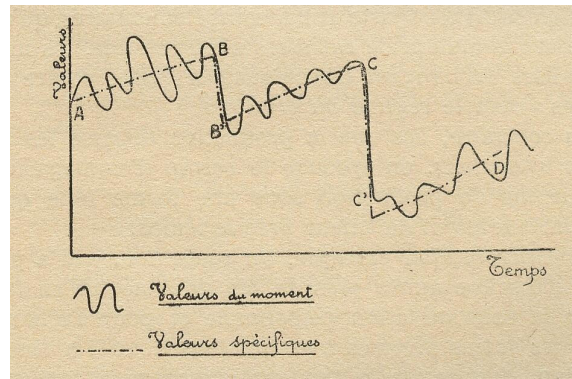 Valeurs
A
B
B'
C
C'
D
Temps
Valeurs du moment
Valeurs spécifiques